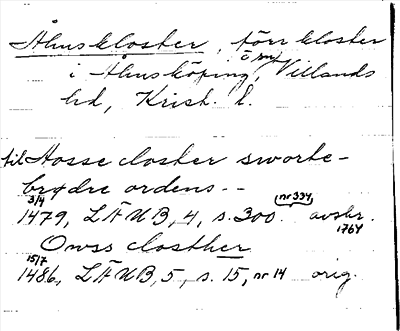 Åhuskloster, förr kloster
i Åhusköping, o sn, Villands
hd, Krist. l.
til Hosse closter sworte-
brødre ordens--
3/4 1479, LÄUB, 4, s. 300. nr 334 avskr. 1764
Owss closther
15/7 1486, LÄUB, 5, s. 15, nr 14 orig.